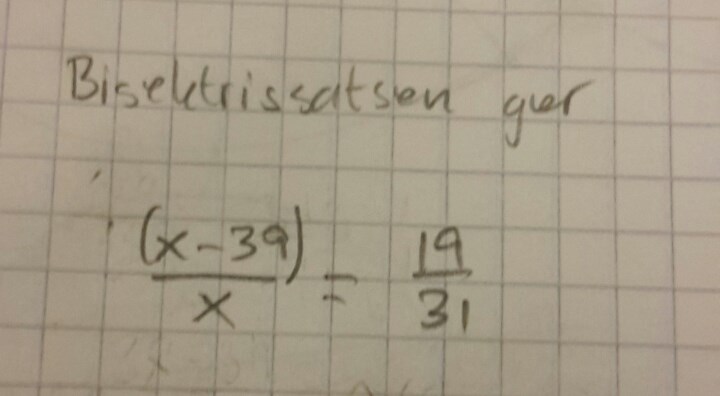 Bisektrissatsen ger
(x-39)/x = 19/31